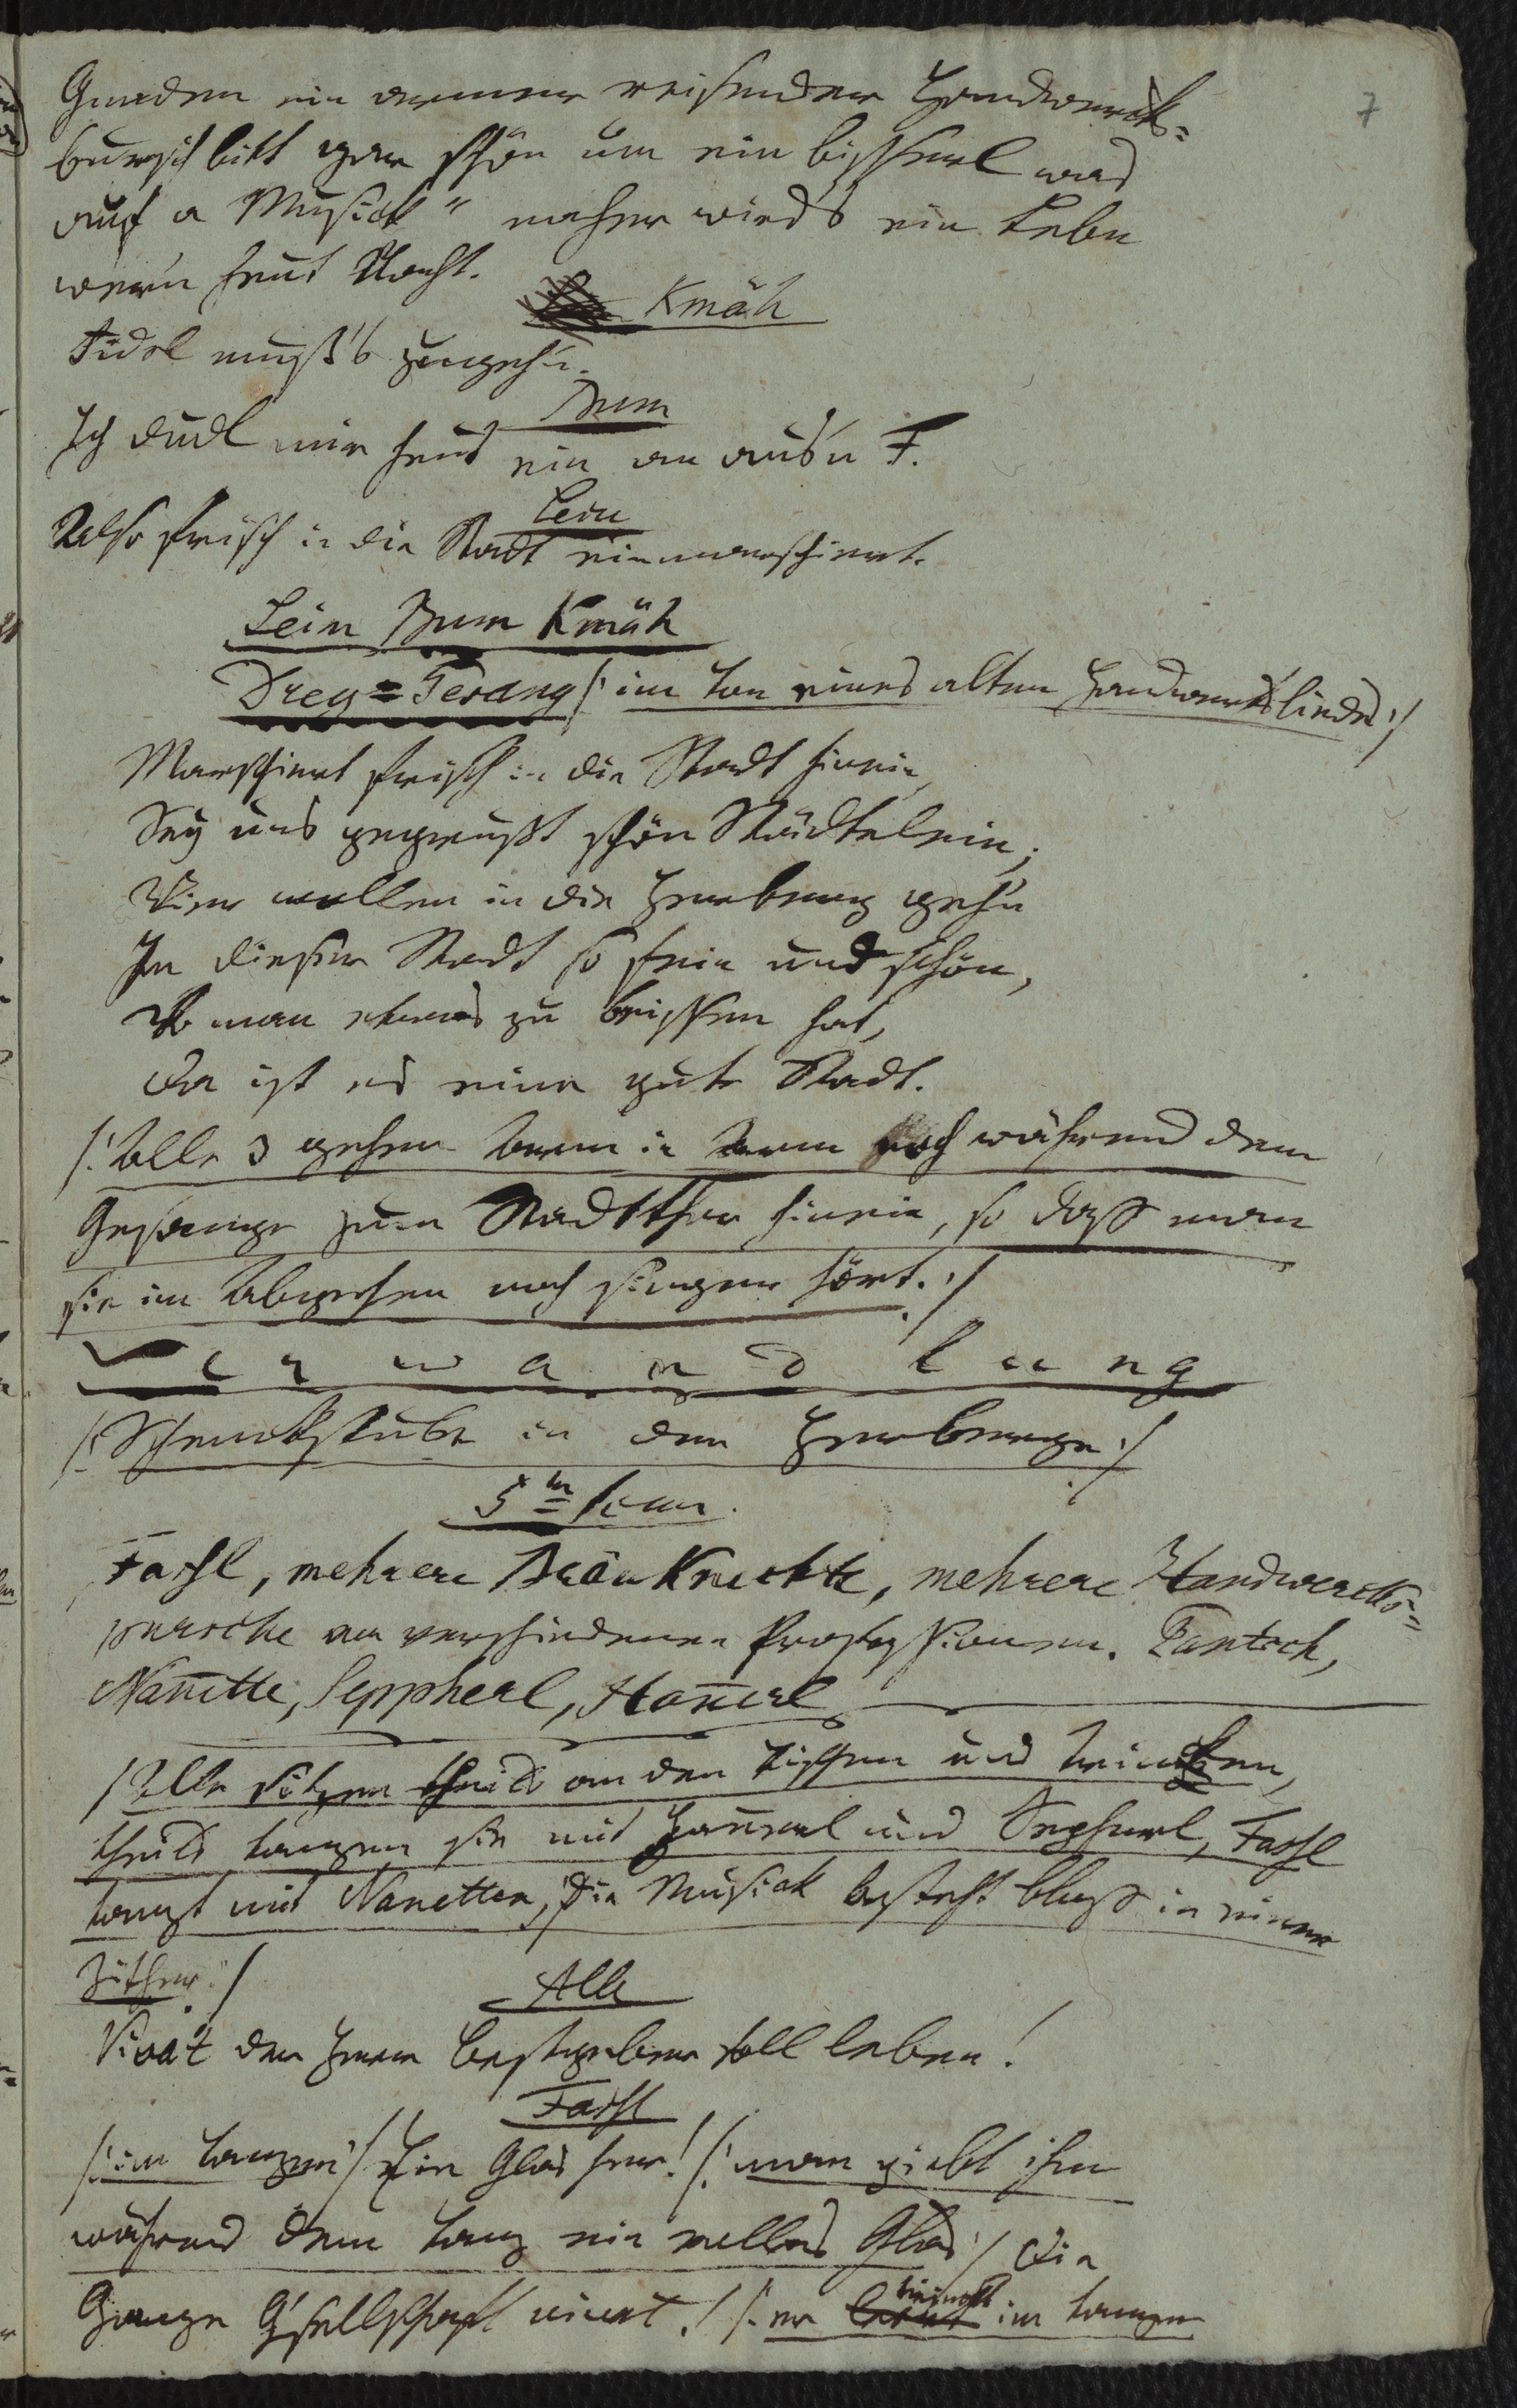 7
Gnaden ein armer reisender Handwercks=
bursch bitt gar schön um ein bisserl was
auf a Musick" nacher wirds ein Lebn
wer'n heut Nacht.
Kmäh
Fidel muß's zugeh'n.
Bum
Ich dudl mir heut ein an aus'n F.
Leim
Also frisch in die Stadt einmarschiert.
Leim Bum Kmäh
Drey=Gesang /: im Ton eines alten Handwerksliedes :/
Marschiert frisch in die Stadt hinein,
Sey uns gegrüßt schön Städtelein;
Wier wollen in die Herberg geh'n
In dieser Stadt so fein und schön,
Wo man etwas zu beissen hat,
Da ist es eine gute Stadt.
/: Alle 3 gehen Arm in Arm noch während dem
Gesange zum Stadtthor hinein, so daß man
sie im Abgehen noch singen hört. :/
Verwandlung
/: Schenckstube in der Herberge :/
5te Scene.
Fassl, mehrere Bräuknechte, mehrere Handwercks=
pursche von verschiedenen Professionen. Pantsch,
Nan̄ette, Seppherl, Han̄erl
/: Alle sitzen theils an den Tischen und trincken,
theils tanzen sie mit Han̄erl und Sepherl, Fassl
tanzt mit Nanetten, die Musick besteht bloß in einer
Zither. :/
Alle
Vivat der Herr Gastgeber soll leben!
Fassl
/: im Tanzen :/ Ein Glas her! /: man giebt ihm
während dem Tanz ein volles Glas :/ Die
Ganze G'sellschaft vivat! /: er trinckt im Tanzen